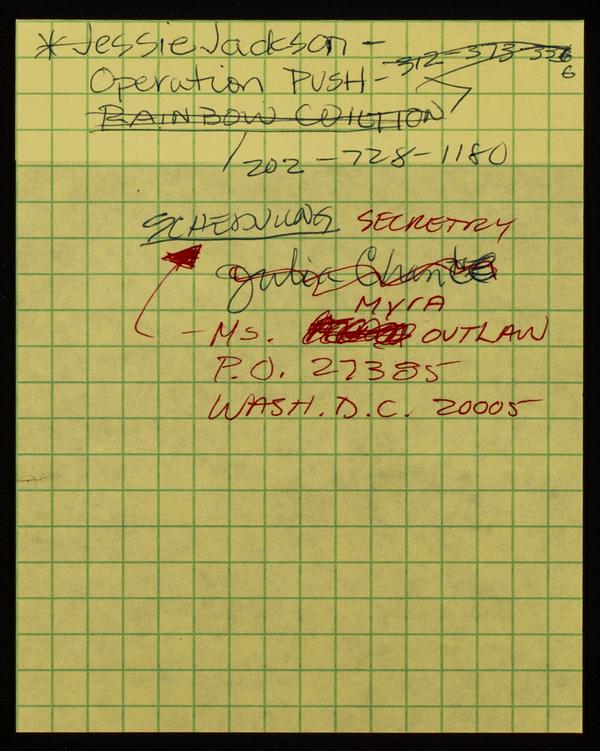 * Jessie Jackson -
Operation PUSH - 312-373-3366
RAINBOW COILTION
202-728-1180
SCHEDULING SECRETRY
Julia
MYRA
- MS. OUTLAW
P.O. 27385
WASH. D.C. 20005